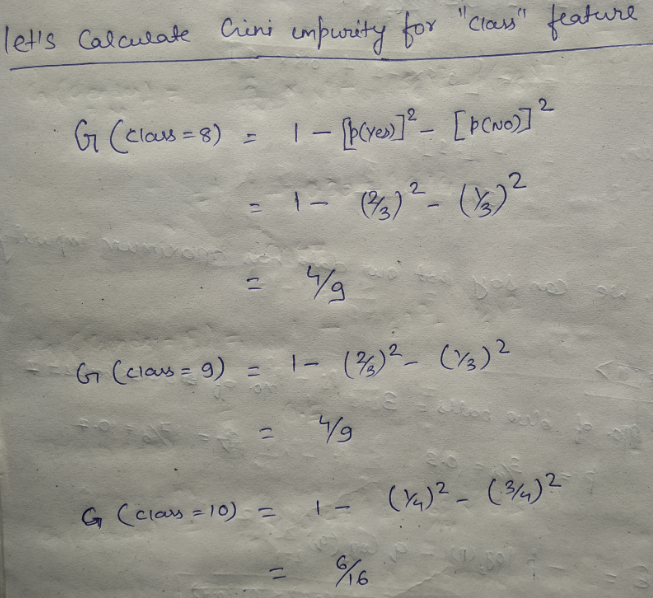 let's Calculate Gini impurity for "Class" feature
G (class = 8) = 1 - [p(Yes)]² - [p(No)]²
= 1 - (2/3)² - (1/3)²
= 4/9
G (class = 9) = 1 - (2/3)² - (1/3)²
= 4/9
G (class = 10) = 1 - (1/4)² - (3/4)²
= 6/16